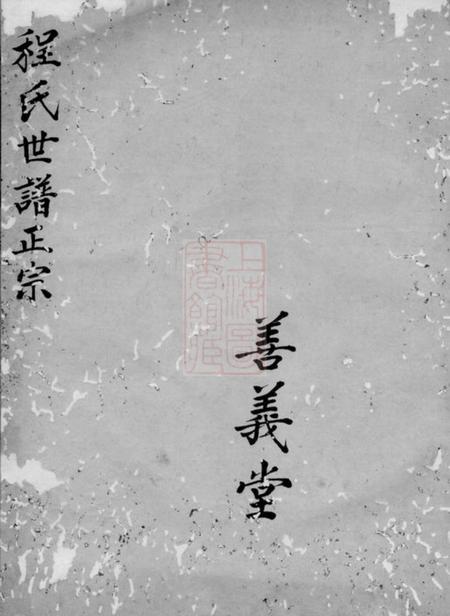 善義堂
程氏世譜正宗
上海圖書館藏